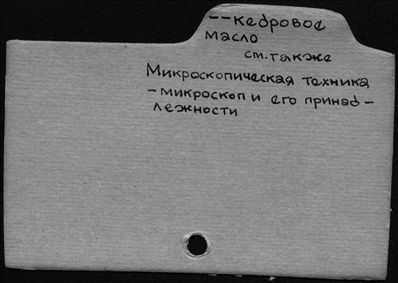 --кедровое
масло
см.также
Микроскопическая техника
-микроскоп и его принад-
лежности